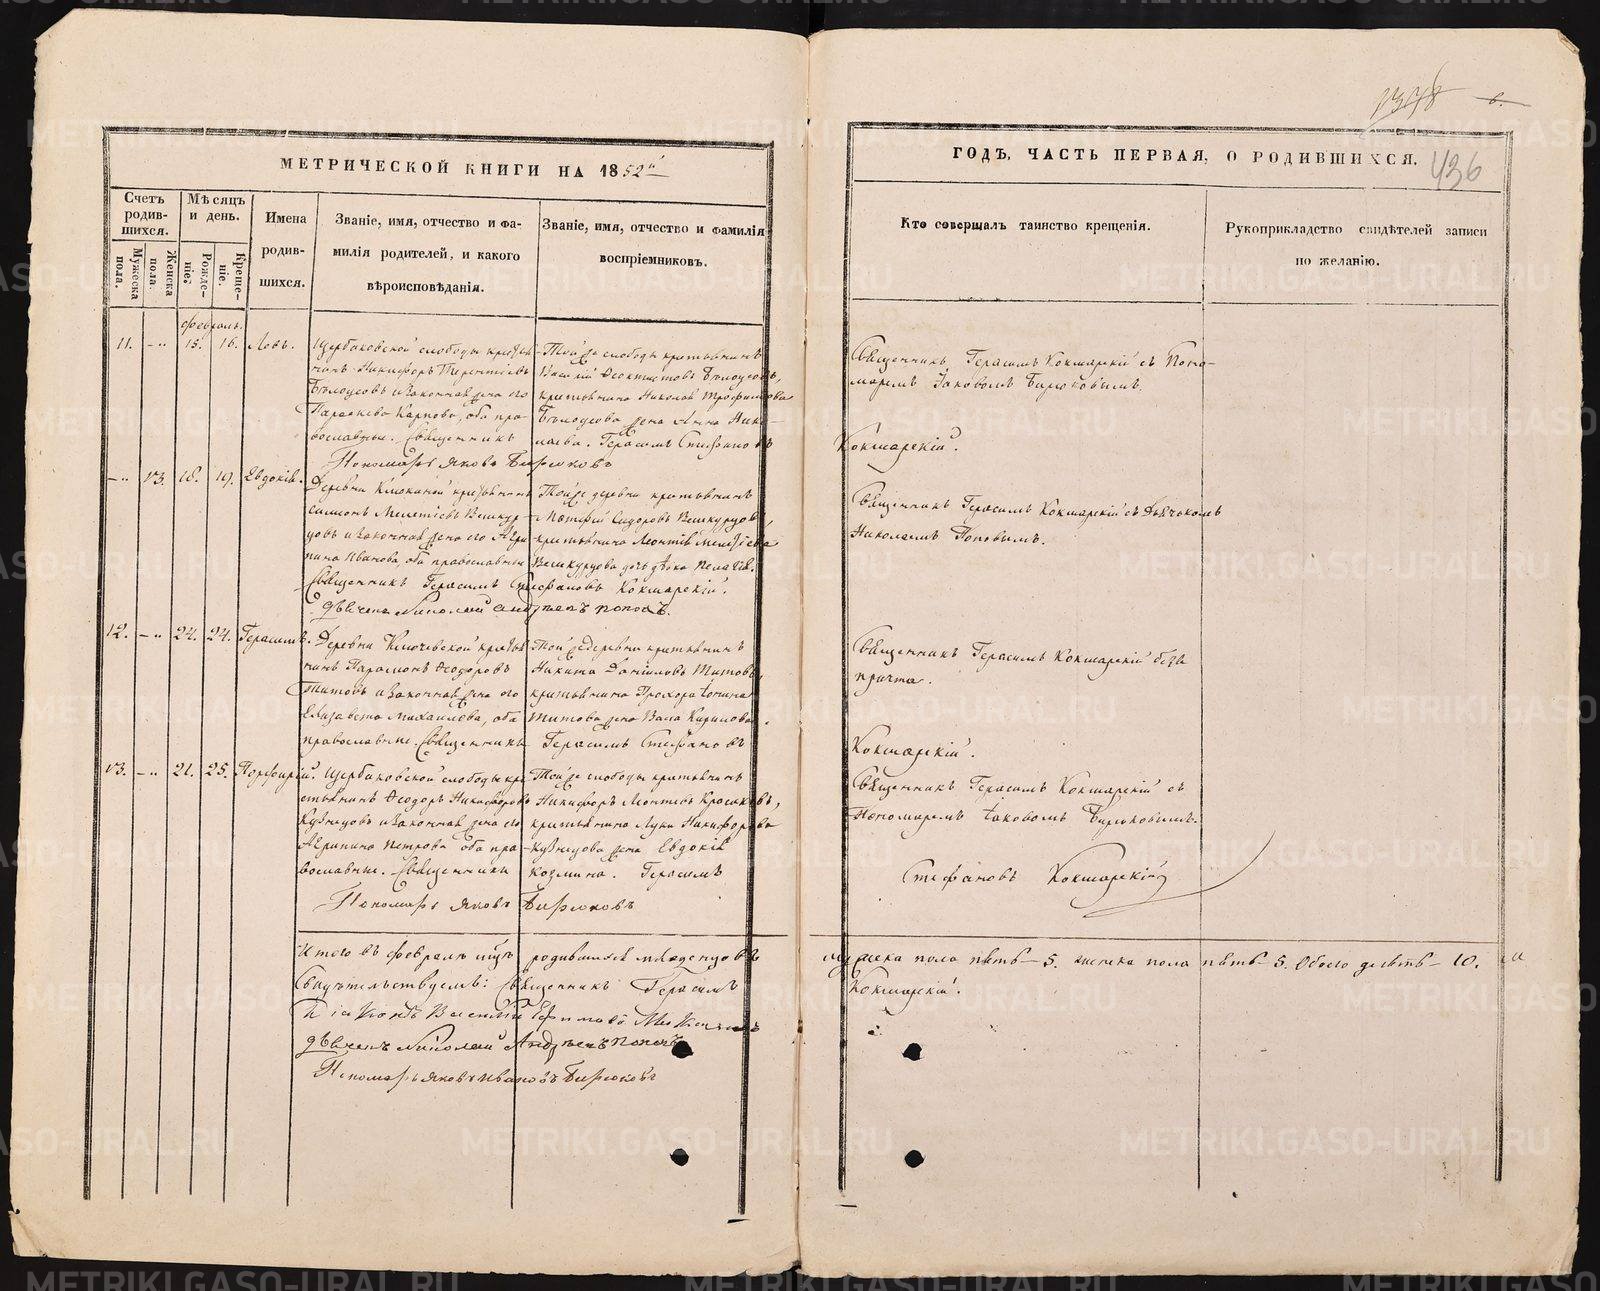 1378 в.
436
МЕТРИЧЕСКОЙ КНИГИ НА 1852й
ГОДЪ, ЧАСТЬ ПЕРВАЯ, О РОДИВШИХСЯ.
Счетъ родившихся.
Мужеска пола.
Женска пола.
Мѣсяцъ и день.
Рожденіе.
Крещеніе.
Имена
родив-
шихся.
Званіе, имя, отчество и фа-
милія родителей, и какого
вѣроисповѣданія.
Званіе, имя, отчество и фамилія
воспріемниковъ.
Кто совершалъ таинство крещенія.
Рукоприкладство свидѣтелей записи
по желанію.
февраль.
11. 15. 16. Левъ.
Щербаковской слободы кресть-
нинъ Никифоръ Терентіевъ
Бѣлоусовъ и законная жена его
Параскева Карпова, оба пра-
вославные. Священникъ
Пономарь Яковъ Бирюковъ
Той же слободы крестьянинъ
Василій Феоктистовъ Бѣлоусовъ,
крестьянина Николая Трофимова
Бѣлоусова жена Анна Нико-
лаева. Герасимъ Стефановъ
Священникъ Герасимъ Кокшарскій съ Поно-
маремъ Іаковомъ Бирюковымъ.
Кокшарскій.
13. 18. 19. Евдокія.
Деревни крестьянинъ
Симеонъ Мелетіевъ Вешкур-
цовъ и законная жена его Агри-
пина Иванова, оба православные
Священникъ Герасимъ Стефановъ Кокшарскій.
Дьячекъ Николай Андреевъ Поповъ.
Той же деревни крестьянинъ
Матфій Сидоровъ Вешкурцовъ,
крестьянина Леонтія Мелетіева
Вешкурцова дочь дѣвка Пелагія.
Священникъ Герасимъ Кокшарскій съ Дьячькомъ
Николаемъ Поповымъ.
12. 24. 24. Герасимъ.
Деревни Ключевской кресть-
нинъ Парамонъ Феодоровъ
Титовъ и законная жена его
Елизавета Михаилова, оба
православные. Священникъ
Той же деревни крестьянинъ
Никита Даніиловъ Титовъ,
крестьянина Прохора
Титова жена Васса Кирилова.
Герасимъ Стефановъ
Священникъ Герасимъ Кокшарскій безъ
причта.
Кокшарскій.
13. 21. 25. Порфирій.
Щербаковской слободы кре-
стьянинъ Феодоръ Никифоровъ
Кузнецовъ и законная жена его
Агрипина Петрова оба пра-
вославные. Священникъ
Пономарь Яковъ Бирюковъ
Той же слободы крестьянинъ
Никифоръ Леонтьевъ
крестьянина Луки Никифорова
Кузнецова жена Евдокія
Козмина. Герасимъ
Священникъ Герасимъ Кокшарскій съ
Пономаремъ Іаковомъ Бирюковымъ.
Стефановъ Кокшарскій
Итого въ февралѣ м͠цѣ родившихся младенцовъ мужеска пола пять - 5. женска пола пять - 5. Обоего - 10.
Свидѣтельствуемъ: Священникъ Герасимъ Кокшарскій.
Діаконъ Василій Ефимовъ
Дьячекъ Николай Андреевъ Поповъ
Пономарь Яковъ Ивановъ Бирюковъ
METRIKI.GASO-URAL.RU